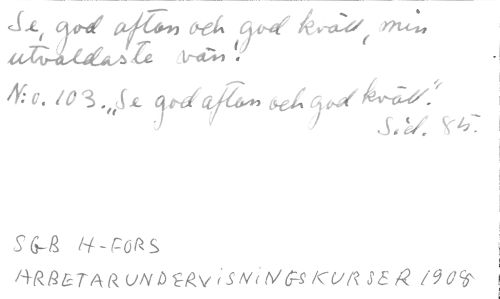 Se, god afton och god kväll, min
utvaldaste vän!
N:o. 103. „Se god afton och god kväll."
Sid. 85.
SGB H-FORS
ARBETARUNDERVISNINGSKURSER 1908